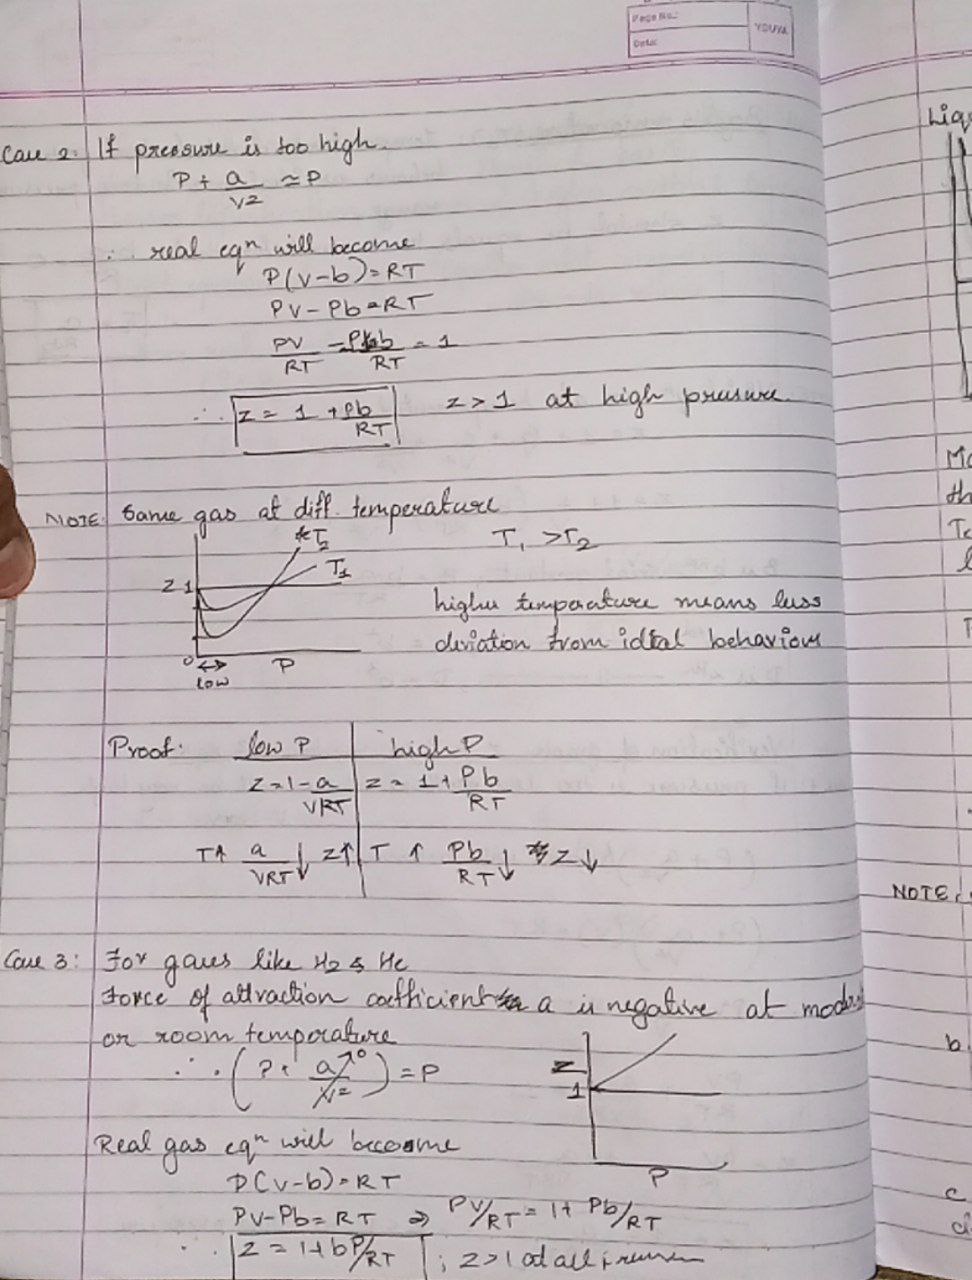 Page No.:
Date:
YOUVA
Case 2: If pressure is too high.
P + a/V2 ≃ P
∴ real eqn will become
P(V-b)=RT
PV-Pb=RT
PV/RT - Pb/RT = 1
∴ Z = 1 + Pb/RT   Z>1 at high pressure
NOTE: Same gas at diff. temperature
T2
T1
T1 >T2
Z 1
higher temperature means less
deviation from ideal behaviour
0 ↔ P
low
Proof: low P | high P
Z=1-a/VRT | Z = 1+ Pb/RT
T↑ a/VRT↓ Z↑ | T ↑ Pb/RT↓ Z↓
Case 3: For gases like H2 & He
Force of attraction coefficient a is negative at
or room temperature
∴ (P+ a/V2→0) = P
Z
1
P
Real gas eqn will become
P(V-b)=RT
PV-Pb=RT ⇒ PV/RT = 1+ Pb/RT
∴ Z = 1+bP/RT ; Z>1 at all
Liq
NOTE:
b
c